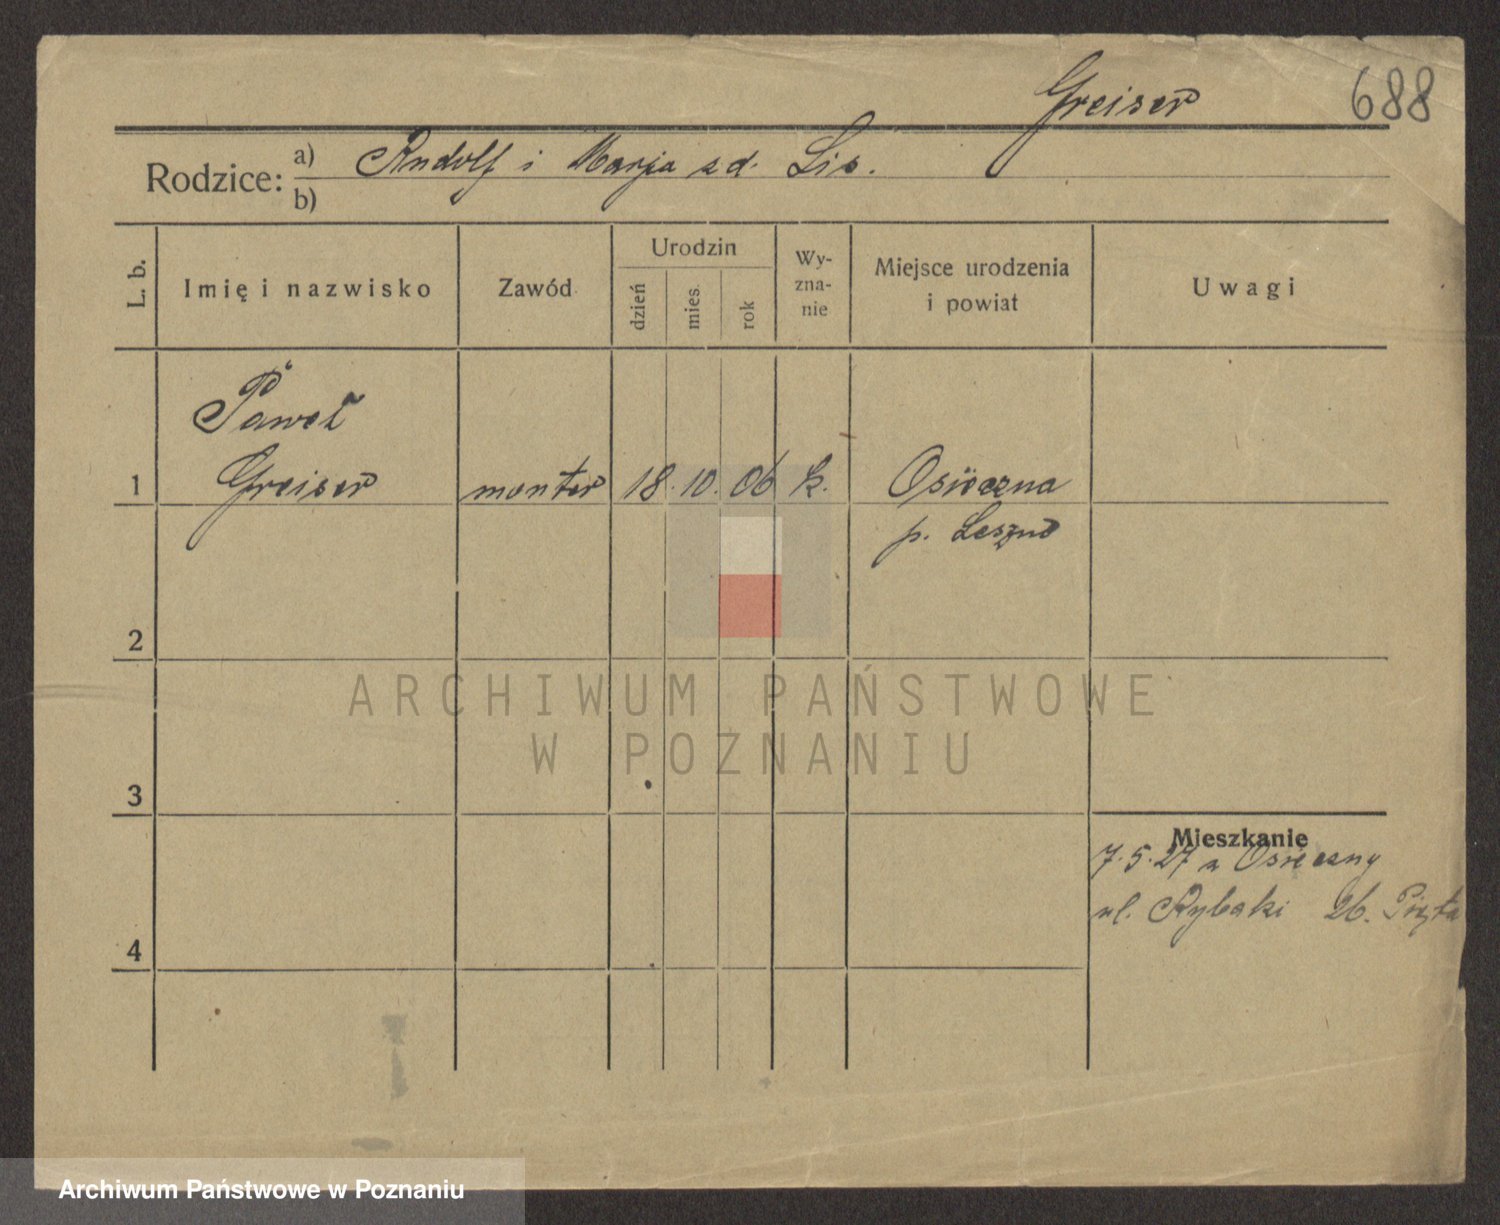 Greiser 688
Rodzice: a) Rudolf i Marja z d. Lis.
b)
L. b. Imię i nazwisko Zawód Urodzin dzień mies. rok Wy-zna-nie Miejsce urodzenia i powiat Uwagi
Paweł
1 Greiser monter 18. 10. 06 k. Osieczna
p. Leszno
2
ARCHIWUM PAŃSTWOWE
W POZNANIU
3
Mieszkanie
7.5.27 z Osieczny
ul. Rybaki 26.
4
Archiwum Państwowe w Poznaniu